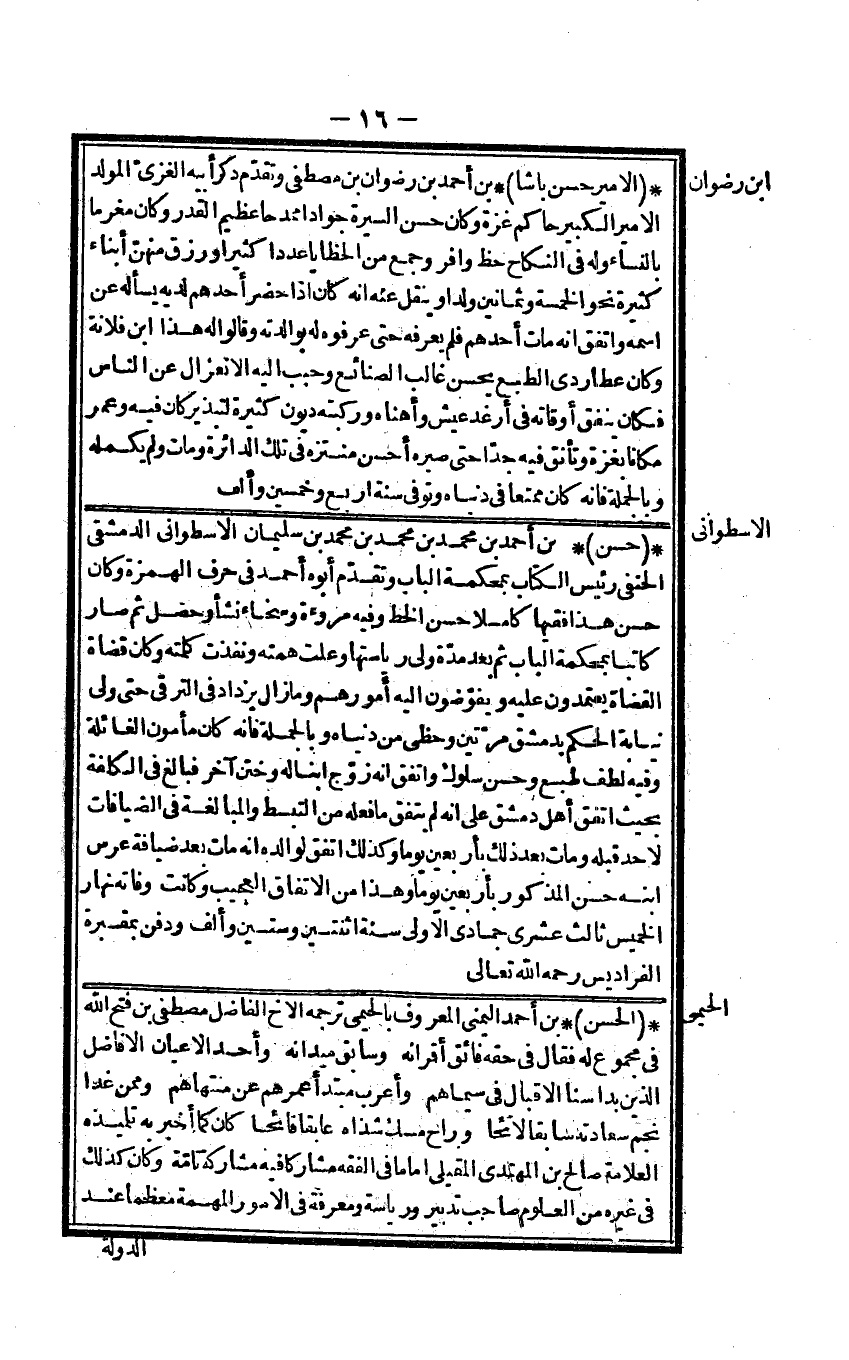 — ١٦ —
ابن رضوان
*(الامير حسن باشا)* بن أحمد بن رضوان بن مصطفى وتقدّم ذكر أبيه الغزىّ المولد
الامير الكبير حاكم غزة وكان حسن السيرة جوادا ممدحا عظيم القدر وكان مغرما
بالنساء وله فى النكاح حظ وافر وجمع من الحظايا عددا كثيرا ورزق منهنّ أبناء
كثيرة نحو الخمسة وثمانين ولدا وينقل عنه انه كان اذا حضر أحدهم لديه يسأله عن
اسمه واتفق انه مات أحدهم فلم يعرفه حتى عرفوه له بوالدته وقالوا له هذا ابن فلانة
وكان عطاردى الطبع يحسن غالب الصنائع وحبب اليه الانعزال عن الناس
فكان ينفق أوقاته فى أرغد عيش وأهناه وركبته ديون كثيرة لتبذير كان فيه وعمر
مكانا بغزة وتأنق فيه جدّا حتى صيره أحسن منتزه فى تلك الدائرة ومات ولم يكمله
وبالجملة فانه كان ممتعا فى دنياه وتوفى سنة اربع وخمسين وألف
الاسطوانى
*(حسن)* بن أحمد بن محمد بن محمد بن محمد بن سليمان الاسطوانى الدمشقى
الحنفى رئيس الكتاب بمحكمة الباب وتقدّم أبوه أحمد فى حرف الهمزة وكان
حسن هذا فقيها كاملا حسن الخط وفيه مروءة وسخاء نشأ وحصل ثم صار
كاتبا بمحكمة الباب ثم بعد مدّة ولى رياستها وعلت همته ونفذت كلمته وكان قضاة
القضاة يعتمدون عليه ويفوّضون اليه أمورهم وما زال يزداد فى الترقى حتى ولى
نيابة الحكم بدمشق مرّتين وحظى من دنياه وبالجملة فانه كان مأمون الغائلة
وفيه لطف طبع وحسن سلوك واتفق انه زوّج ابنا له وختن آخر فبالغ فى الكلفة
بحيث اتفق أهل دمشق على انه لم يتفق ما فعله من التبسط والمبالغة فى الضيافات
لاحد قبله ومات بعد ذلك بأربعين يوما وكذلك اتفق لوالده انه مات بعد ضيافة عرس
ابنه حسن المذكور بأربعين يوما وهذا من الاتفاق العجيب وكانت وفاته نهار
الخميس ثالث عشرى جمادى الاولى سنة اثنتين وستين وألف ودفن بمقبرة
الفراديس رحمه الله تعالى
الحيمى
*(الحسن)* بن أحمد اليمنى المعروف بالحيمى ترجمه الاخ الفاضل مصطفى بن فتح الله
فى مجموع له فقال فى حقه فائق أقرانه وسابق ميدانه وأحد الاعيان الافاضل
الذين بدا سنا الاقبال فى سيماهم وأعرب مبتدأ عمرهم عن منتهاهم وممن غدا
نجم سعادته سابقا لائحا وراح مسك شذاه عابقا فائحا كان كما أخبر به تلميذه
العلامة صالح بن المهتدى المقبلى اماما فى الفقه مشاركا فيه مشاركة تامّة وكان كذلك
فى غيره من العلوم صاحب تدبير ورياسة ومعرفة فى الامور المهمة معظما عند
الدولة